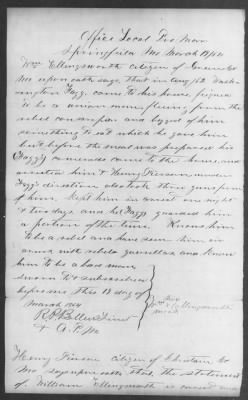 Office Local Pro. Mar
Springfield Mo March 18/64
Wm Ellingsworth citizen of Greene Co
Mo upon oath says, that in Aug /62 Wash-
ington Fagg came to his home
to be a union man fleeing from the
rebel and begged of him
something to eat which he gave him
but before the meat was prepared his
(Fagg's) comerades came to the house, and
arrested him & Henry under
Fagg's direction also took three guns from
him. Kept him in arrest one night
& two days and he (Fagg) guarded him
a portion of the time. Knows him
to be a rebel and have seen him in
arms with rebel guerrillas and knows
him to be a bad man
Sworn to & subscribed
before me this 18 day of
March 1864
his
Wm X Ellingsworth
mark
R P
& A. P. M.
Henry citizen of Christian Co
Mo says upon oath that the statement
of William Ellingsworth is correct and